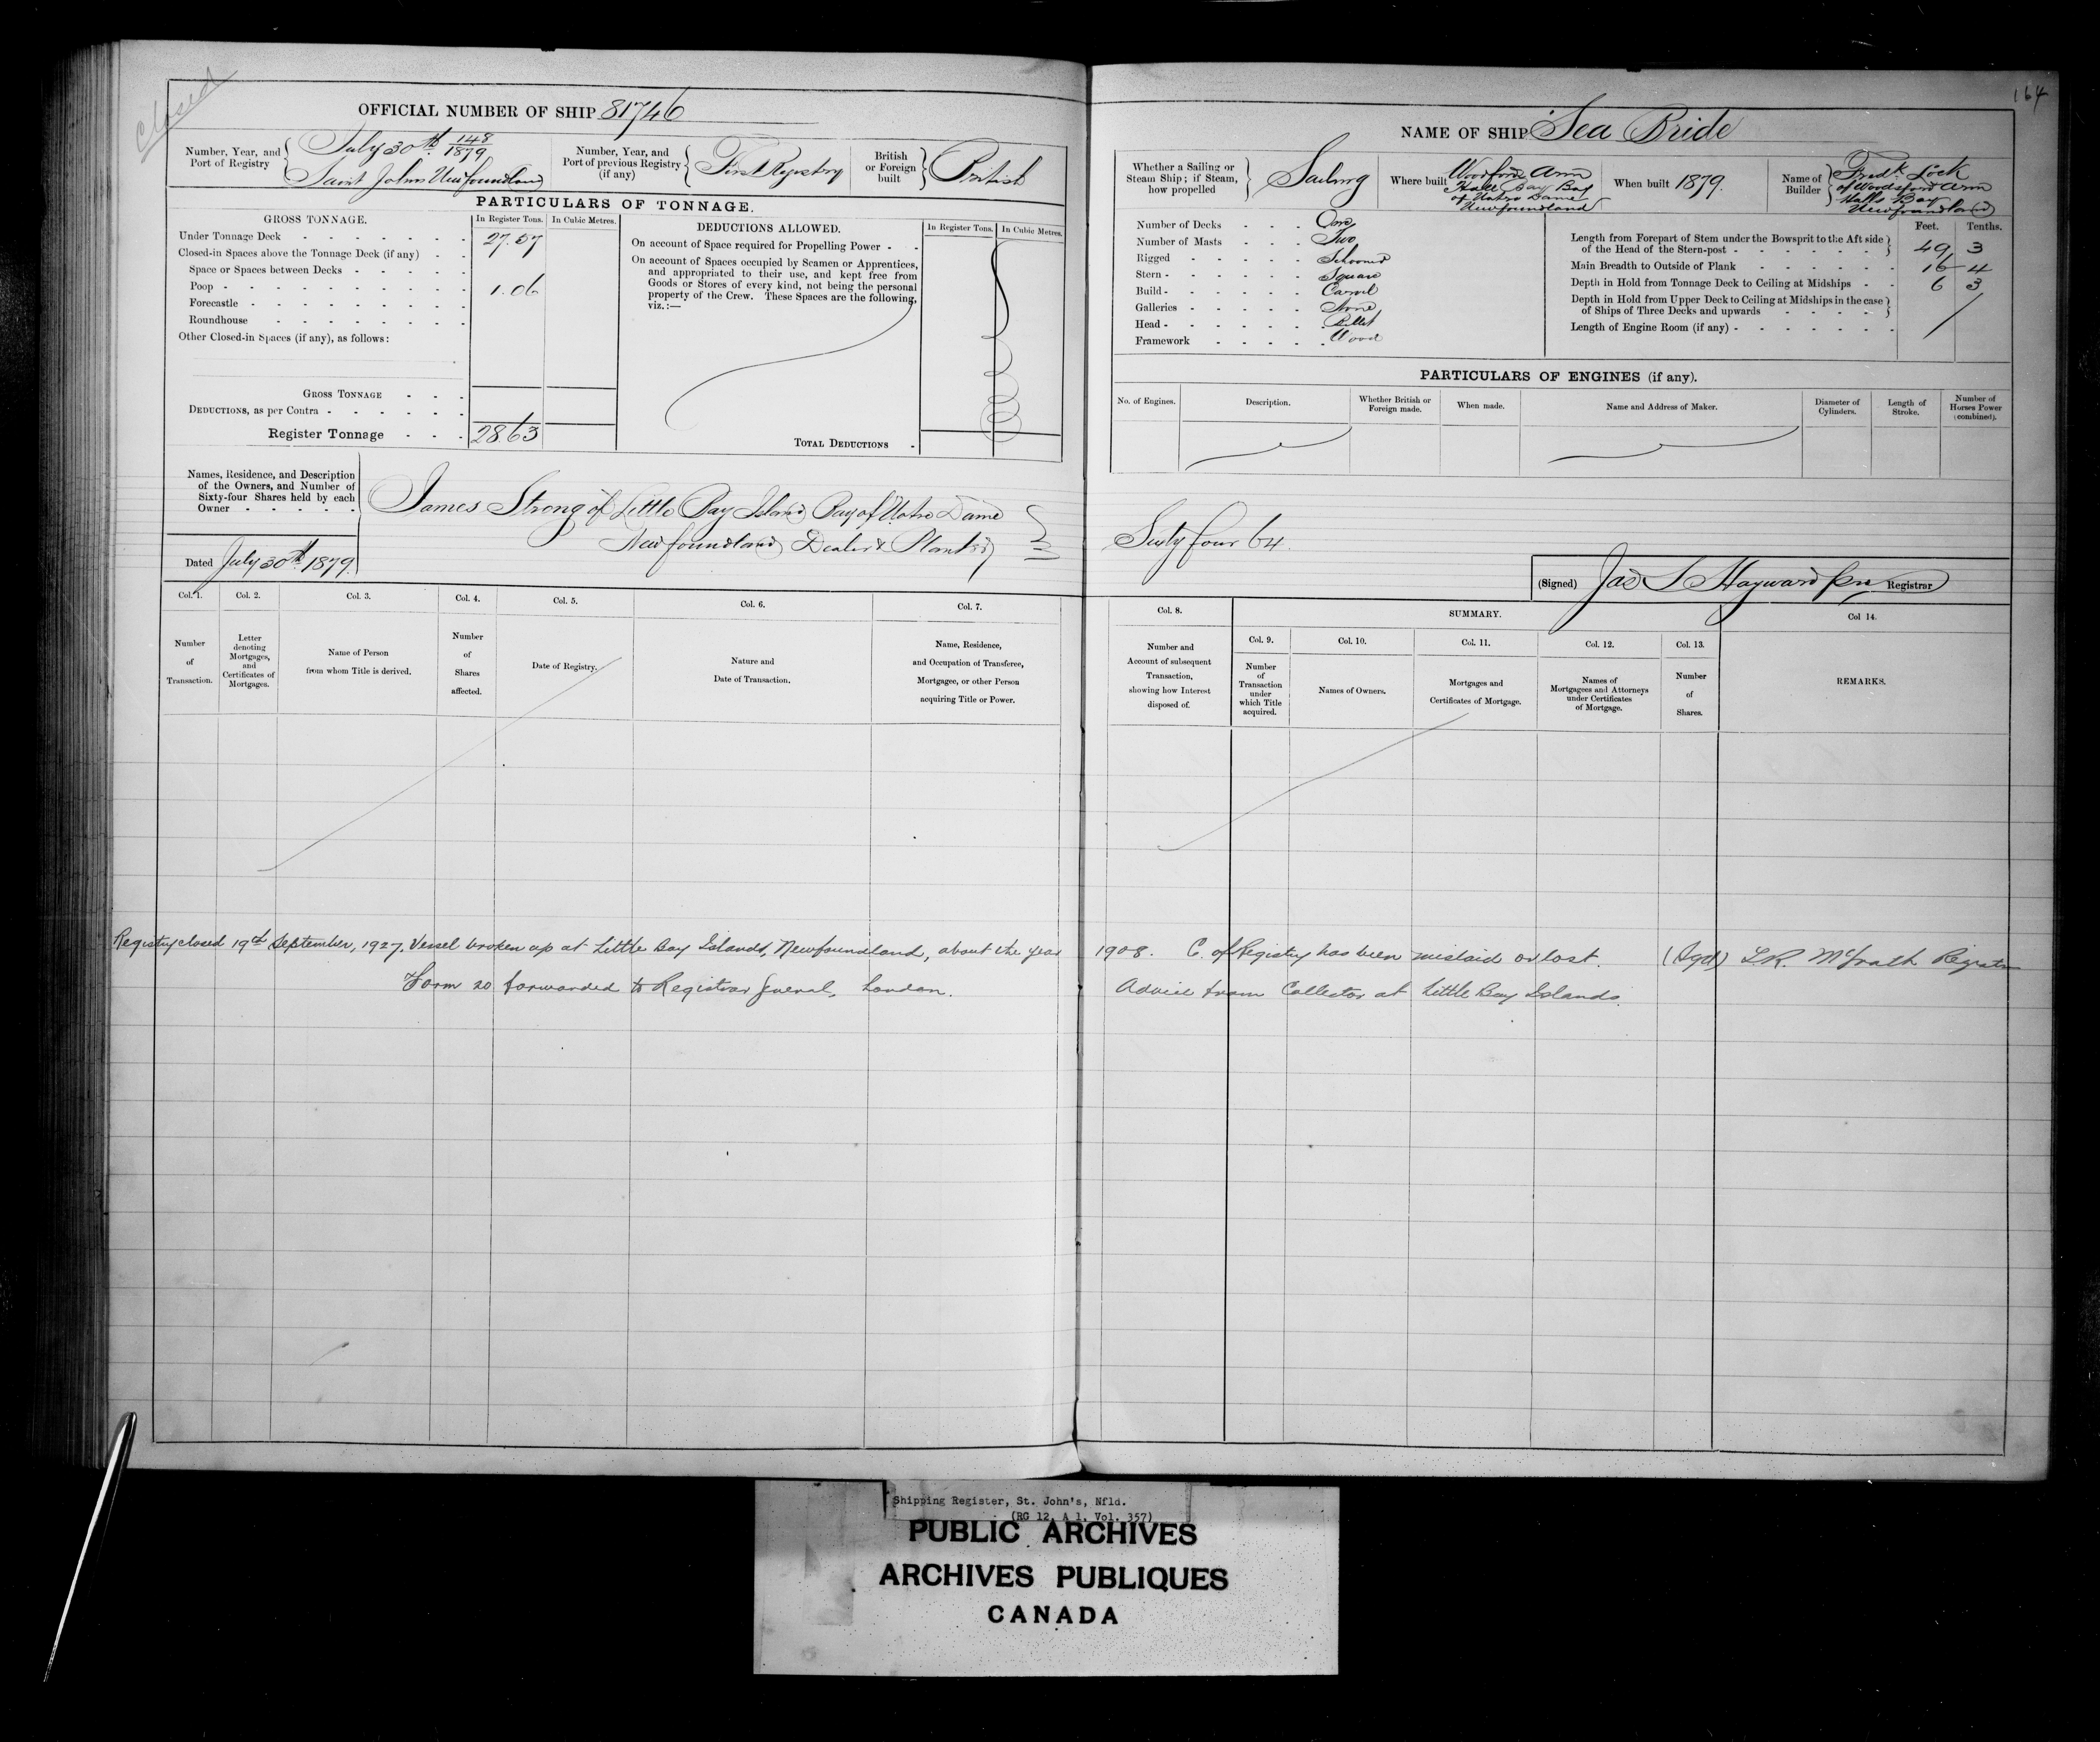 Closed
164
OFFICIAL NUMBER OF SHIP 81746
Number, Year, and Port of Registry
July 30th 148/1879
Saint Johns Newfoundland
Number, Year, and Port of previous Registry (if any)
First Registry
British or Foreign built
British
PARTICULARS OF TONNAGE.
GROSS TONNAGE.
In Register Tons.
In Cubic Metres.
Under Tonnage Deck 27.57
Closed-in Spaces above the Tonnage Deck (if any)
Space or Spaces between Decks
Poop 1.06
Forecastle
Roundhouse
Other Closed-in Spaces (if any), as follows:
GROSS TONNAGE
DEDUCTIONS, as per Contra
Register Tonnage 28.63
DEDUCTIONS ALLOWED.
In Register Tons.
In Cubic Metres.
On account of Space required for Propelling Power
On account of Spaces occupied by Seamen or Apprentices,
and appropriated to their use, and kept free from
Goods or Stores of every kind, not being the personal
property of the Crew. These Spaces are the following,
viz.:—
TOTAL DEDUCTIONS
Names, Residence, and Description
of the Owners, and Number of
Sixty-four Shares held by each
Owner
James Strong of Little Bay Island Bay of Notre Dame
Newfoundland Dealer & Planter
Dated July 30th 1879.
Col. 1.
Number of Transaction.
Col. 2.
Letter denoting Mortgages, and Certificates of Mortgages.
Col. 3.
Name of Person from whom Title is derived.
Col. 4.
Number of Shares affected.
Col. 5.
Date of Registry.
Col. 6.
Nature and Date of Transaction.
Col. 7.
Name, Residence, and Occupation of Transferee, Mortgagee, or other Person acquiring Title or Power.
NAME OF SHIP Sea Bride
Whether a Sailing or Steam Ship; if Steam, how propelled
Sailing
Where built
Woodford Arm
Halls Bay Bay
of Notre Dame
Newfoundland
When built 1879.
Name of Builder
Fredk Lock
of Woodsford Arm
Halls Bay
Newfoundland
Number of Decks One
Number of Masts Two
Rigged Schooner
Stern Square
Build Carvel
Galleries None
Head Billet
Framework Wood
Feet. Tenths.
Length from Forepart of Stem under the Bowsprit to the Aft side
of the Head of the Stern-post 49 3
Main Breadth to Outside of Plank 16 4
Depth in Hold from Tonnage Deck to Ceiling at Midships 6 3
Depth in Hold from Upper Deck to Ceiling at Midships in the case
of Ships of Three Decks and upwards
Length of Engine Room (if any)
PARTICULARS OF ENGINES (if any).
No. of Engines.
Description.
Whether British or Foreign made.
When made.
Name and Address of Maker.
Diameter of Cylinders.
Length of Stroke.
Number of Horses Power (combined).
Sixty four 64.
(Signed) Jas S Hayward Registrar
Col. 8.
Number and Account of subsequent Transaction, showing how Interest disposed of.
SUMMARY.
Col. 9.
Number of Transaction under which Title acquired.
Col. 10.
Names of Owners.
Col. 11.
Mortgages and Certificates of Mortgage.
Col. 12.
Names of Mortgagees and Attorneys under Certificates of Mortgage.
Col. 13.
Number of Shares.
Col 14.
REMARKS.
Registry closed 19th September, 1927. Vessel broken up at Little Bay Islands, Newfoundland, about the year 1908. C. of Registry has been mislaid or lost. (Sgd) McGrath Registrar
Form 20 forwarded to Registrar General, London. Advice from Collector at Little Bay Islands.
Shipping Register, St. John's, Nfld.
(RG 12, A 1, Vol. 357)
PUBLIC ARCHIVES
ARCHIVES PUBLIQUES
CANADA